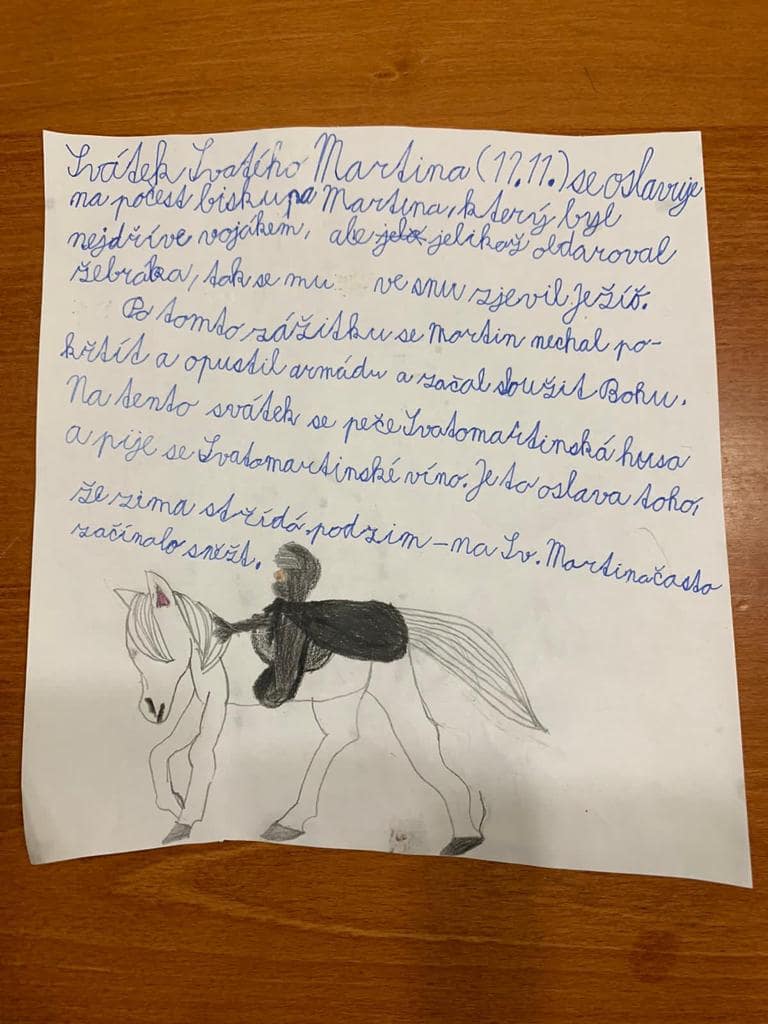 Svátek Svatého Martina (11.11.) se oslavuje
na počest biskupa Martina, který byl
nejdříve vojákem, ale jelikož obdaroval
žebráka, tak se mu ve snu zjevil Ježíš.
Po tomto zážitku se Martin nechal po-
křtít a opustil armádu a začal sloužit Bohu.
Na tento svátek se peče Svatomartinská husa
a pije se Svatomartinské víno. Je to oslava toho,
že zima střídá podzim – na Sv. Martina často
začínalo sněžit.